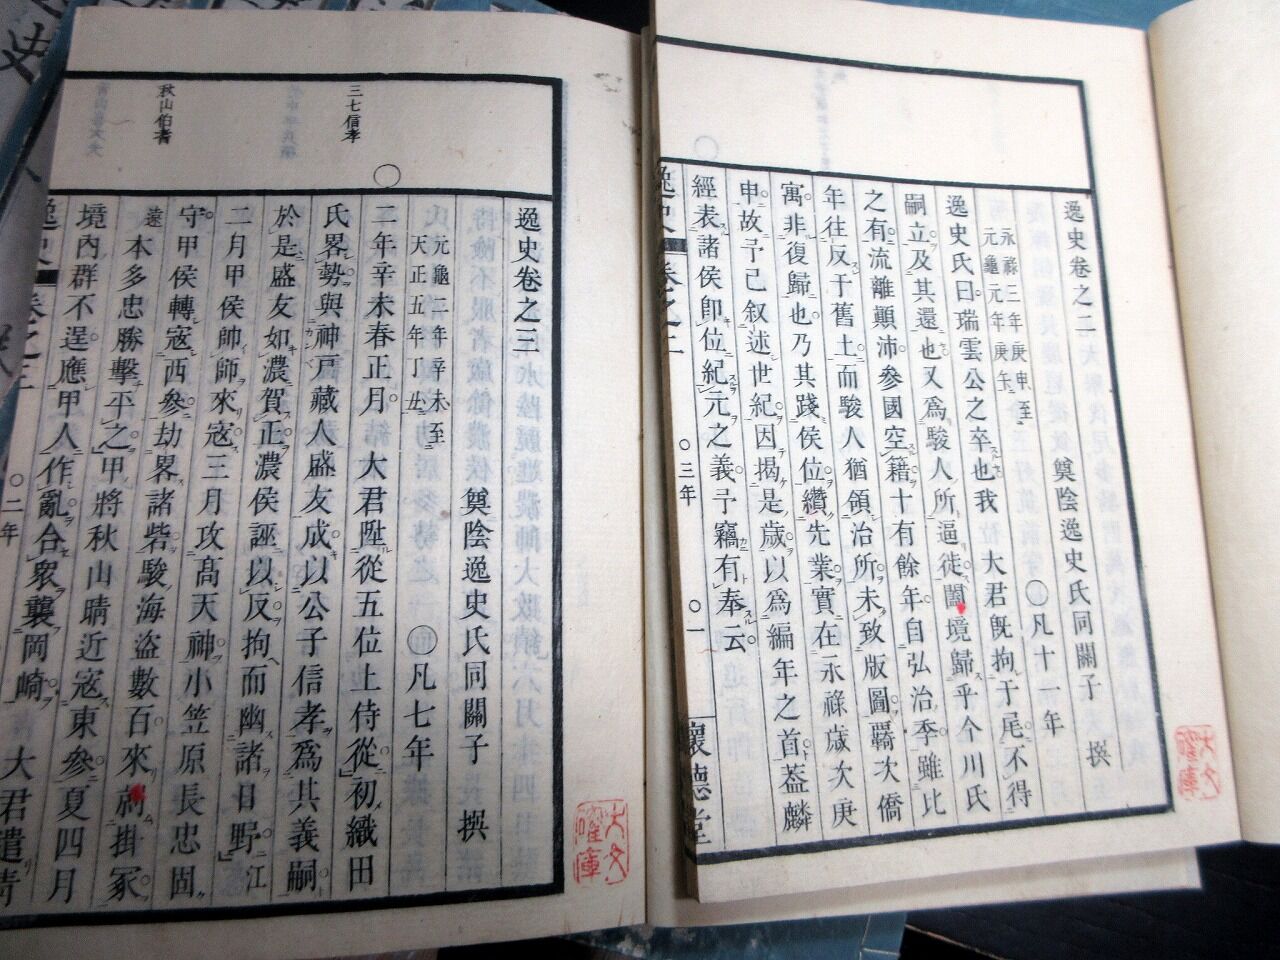 逸史卷之二
奠陰逸史氏同關子 撰
永祿三年庚申至
元龜元年庚午
凡十一年
逸史氏曰瑞雲公之卒也我 大君既拘于尾不得
嗣立及其還也又爲駿人所逼徒闔境歸乎今川氏
之有流離顛沛參國空籍十有餘年自弘治季雖比
年往反于舊土而駿人猶領治所未致版圖覉次僑
寓非復歸也乃其踐侯位纘先業實在永祿歲次庚
申故予已叙述世紀因揭是歲以爲編年之首葢麟
經表諸侯卽位紀元之義予竊有奉云
逸史 卷之二
三年
一
懷德堂
大文
確庫
三七信孝
秋山伯耆
逸史卷之三
奠陰逸史氏同關子 撰
元龜二年辛未至
天正五年丁丑
凡七年
二年辛未春正月 大君陞從五位上侍從初織田
氏畧勢與神戸藏人盛友成以公子信孝爲其義嗣
於是盛友如濃賀正濃侯誣以反拘而幽諸日野江
二月甲侯帥師來寇三月攻髙天神小笠原長忠固
守甲侯轉寇西參劫畧諸砦駿海盜數百來 掛冢
遠 本多忠勝擊平之甲將秋山晴近寇東參夏四月
境內群不逞應甲人作亂合衆襲岡崎 大君遣青
逸史 卷之三
二年
大文
確庫